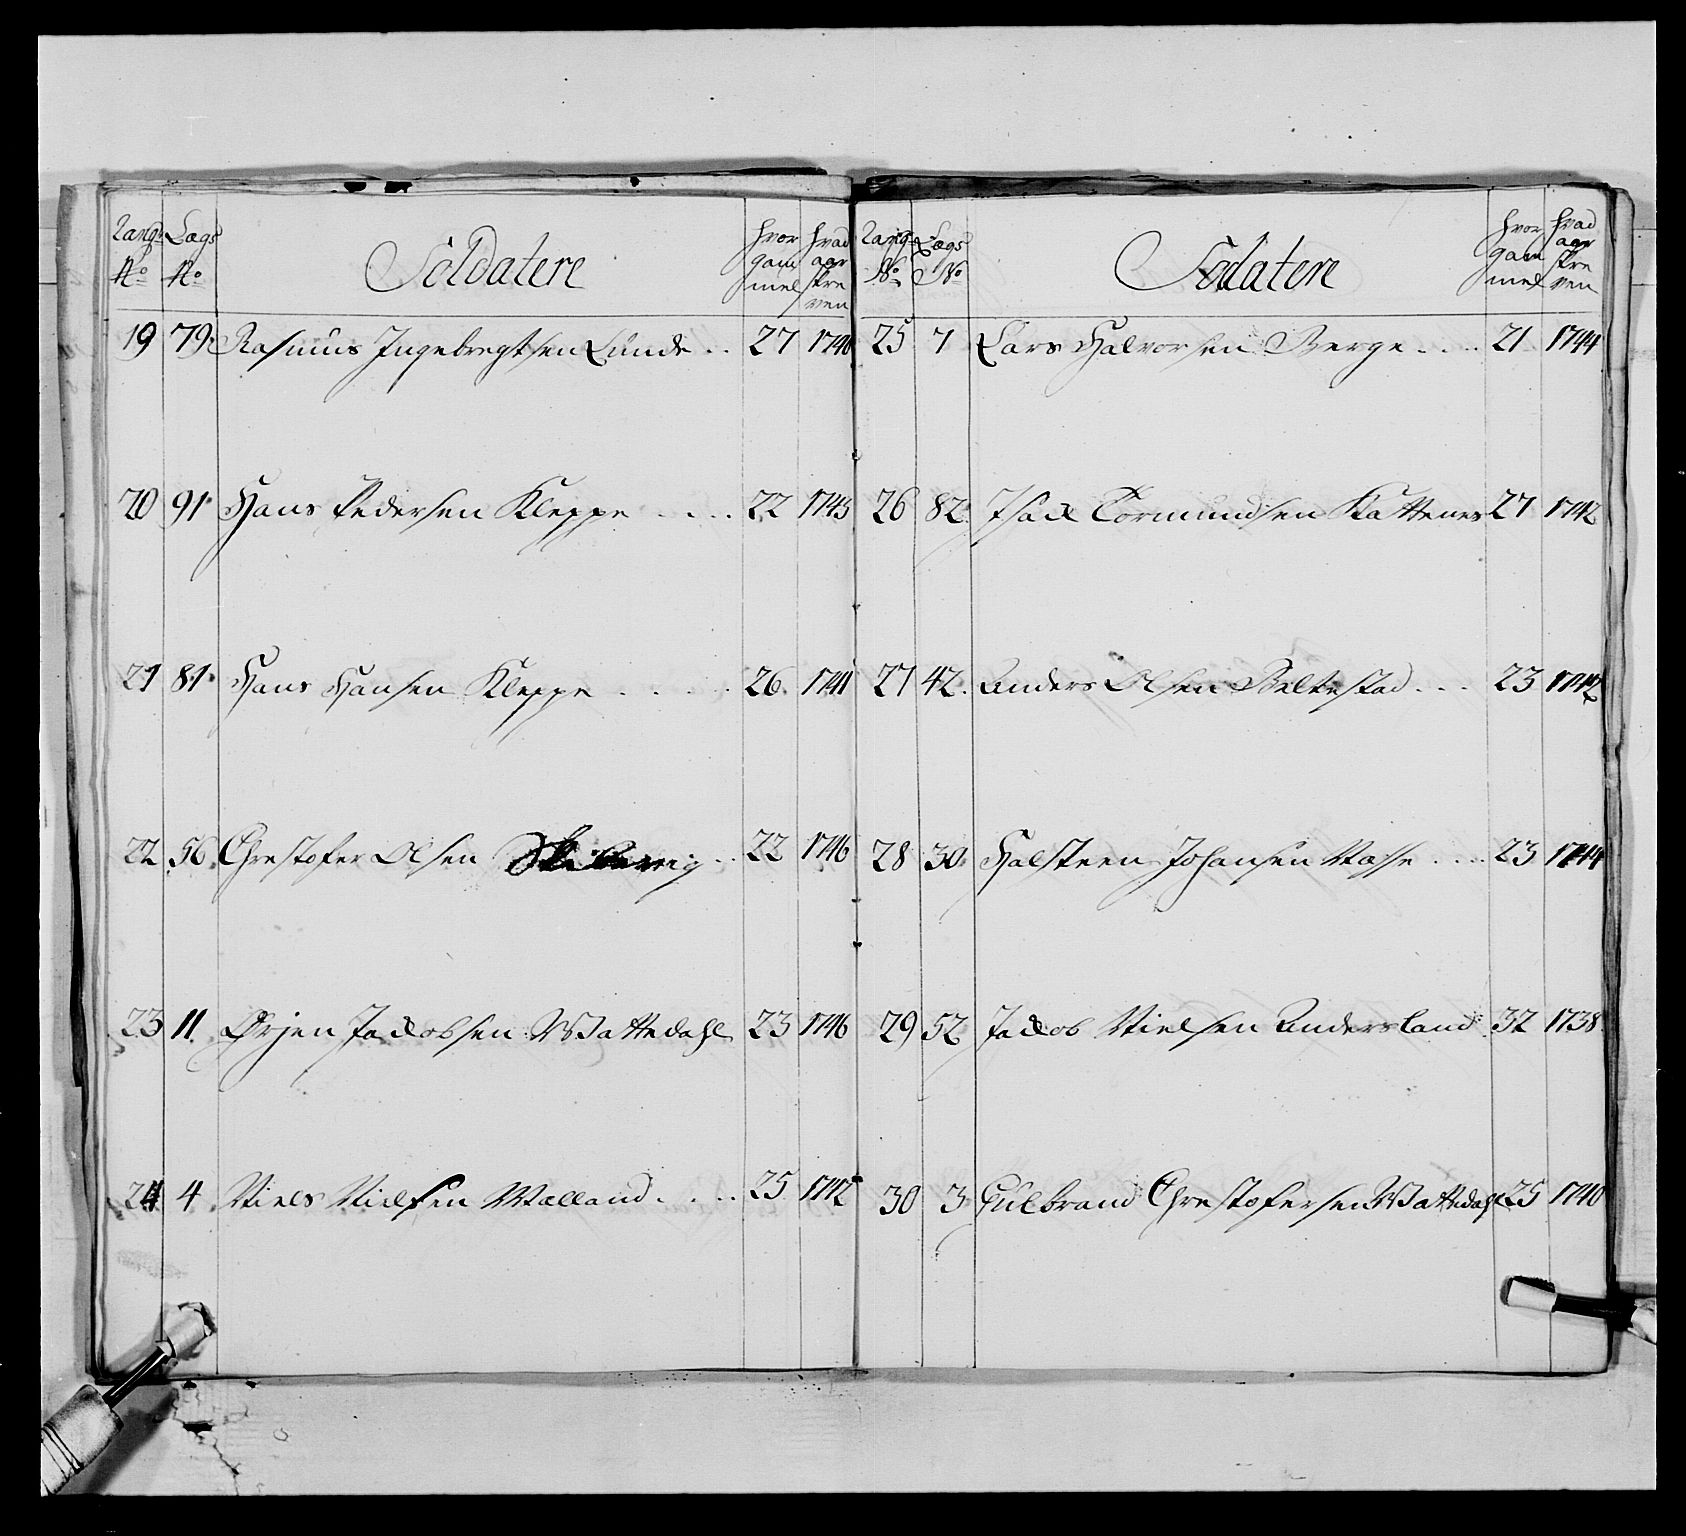 Rang Lægs Soldatere hvor gam mel hvad aar skre ven
No No
19 79. Rasmus Ingebregtsen Lunde .. 27 1740
20 91. Hans Pedersen Kleppe .... 22 1745
21 81. Hans Hansen Kleppe ..... 26. 1741
22 56. Chrestofer Olsen .. 22 1746
23 11. Ørjen Jacobsen Wattedahl 23 1746
24 4 Niels Nielsen Walland .... 25 1742
Rang Lægs Sodatere hvor gam mel hvad aar skre ven
No No
25 7 Lars Halvorsen Berge .... 21 1744
26 82. Isac Tormundsen Kattenes 27 1742
27 42. Anders Olsen Beltestad ... 23 1742
28 30. Halsteen Johansen Wasse .... 23 1744
29 52 Jacob Nielsen Andersland 32 1738
30 3 Gulbrand Chrestofersen Wattedahl 25 1740